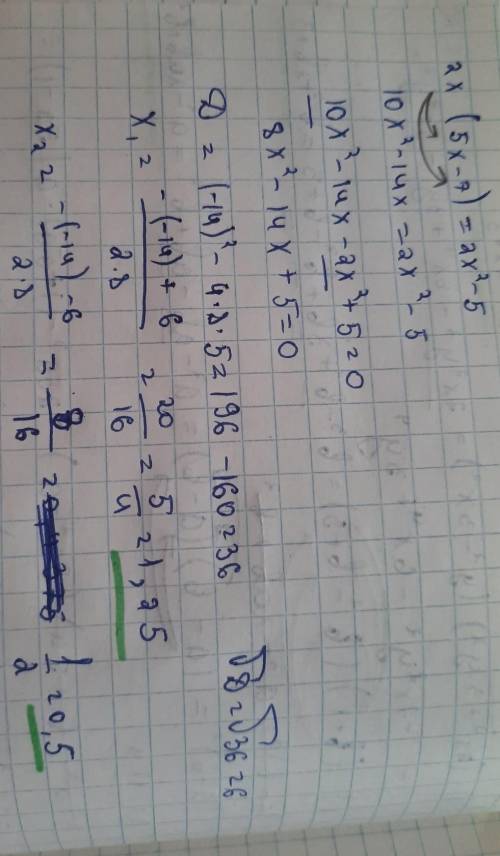 2x (5x-7) = 2x²-5
10x²-14x = 2x²-5
10x²-14x-2x²+5=0
8x²-14x+5=0
D = (-14)²-4·8·5=196-160=36 √D=√36=6
x₁ = -(-14)+6/2·8 = 20/16 = 5/4 = 1,25
x₂ = -(-14)-6/2·8 = 8/16 = 1/2 = 0,5